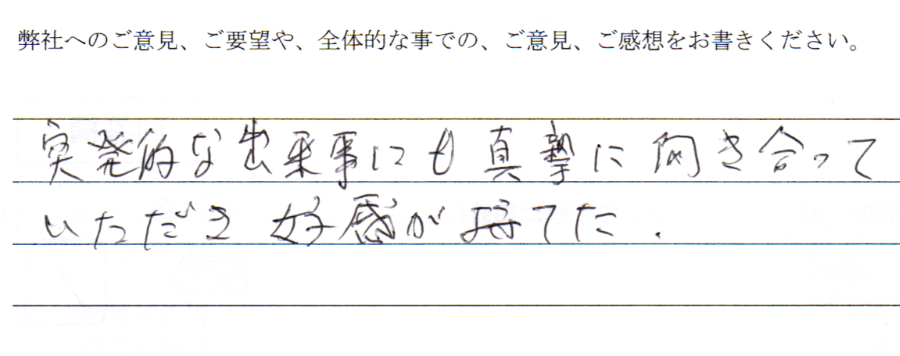 弊社へのご意見、ご要望や、全体的な事での、ご意見、ご感想をお書きください。
突発的な出来事にも真摯に向き合って
いただき好感が持てた.